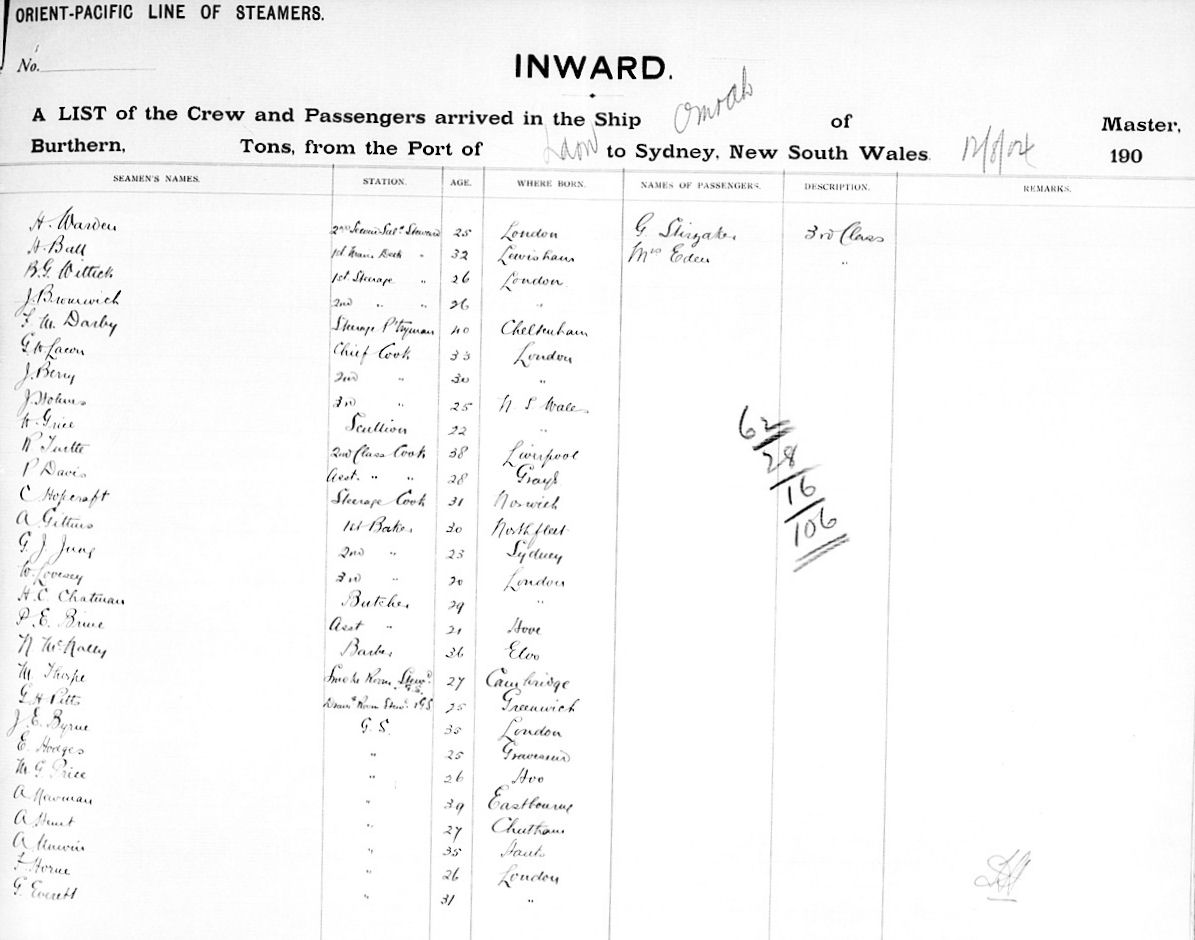 ORIENT-PACIFIC LINE OF STEAMERS.
No.
INWARD.
A LIST of the Crew and Passengers arrived in the Ship Omrah of Master,
Burthern, Tons, from the Port of Ldon to Sydney, New South Wales. 12/8/04 190
SEAMEN'S NAMES. STATION. AGE. WHERE BORN. NAMES OF PASSENGERS. DESCRIPTION. REMARKS.
H. Warden 25 London G. Stirzaker 3rd Class
A. Ball 32 Lewisham Mrs Eden "
B.G. Wittick 1st Steerage " 26 London
J. Bromwich 2nd " " 26 "
F. M. Darby Steerage P'tryman 40 Cheltenham
G. W. Lacon Chief Cook 33 London
J. Berry 2nd " 30 "
J. Holmes 3rd " 25 N. S. Wales
W. Grice Scullion 22 "
R. Tuttle 2nd Class Cook 38 Liverpool
P. Davis Asst. " " 28 Grays
C. Hopcraft Steerage Cook 31 Norwich
A. Gittins 1st Baker 30 Northfleet
G. J. Jung 2nd " 23 Sydney
W. Lovesey 3rd " 20 London
H. C. Chatman Butcher 29 "
P. E. Bine Asst " 21 Hove
N. McNally Barber 36
M. Thorpe Smoke Room Stewd. G.S. 27 Cambridge
G. H. Pitts Room Stewd. 25 Greenwich
J. E. Byrne G. S. 35 London
E. Hodges " 25 Gravesend
M. G. Price " 26 Hoo
A. Newman " 39 Eastbourne
A. Hunt " 27 Chatham
A. Unwin " 35 Hants
F. Horne " 26 London
G. Everett " 31 "
62
28
16
106